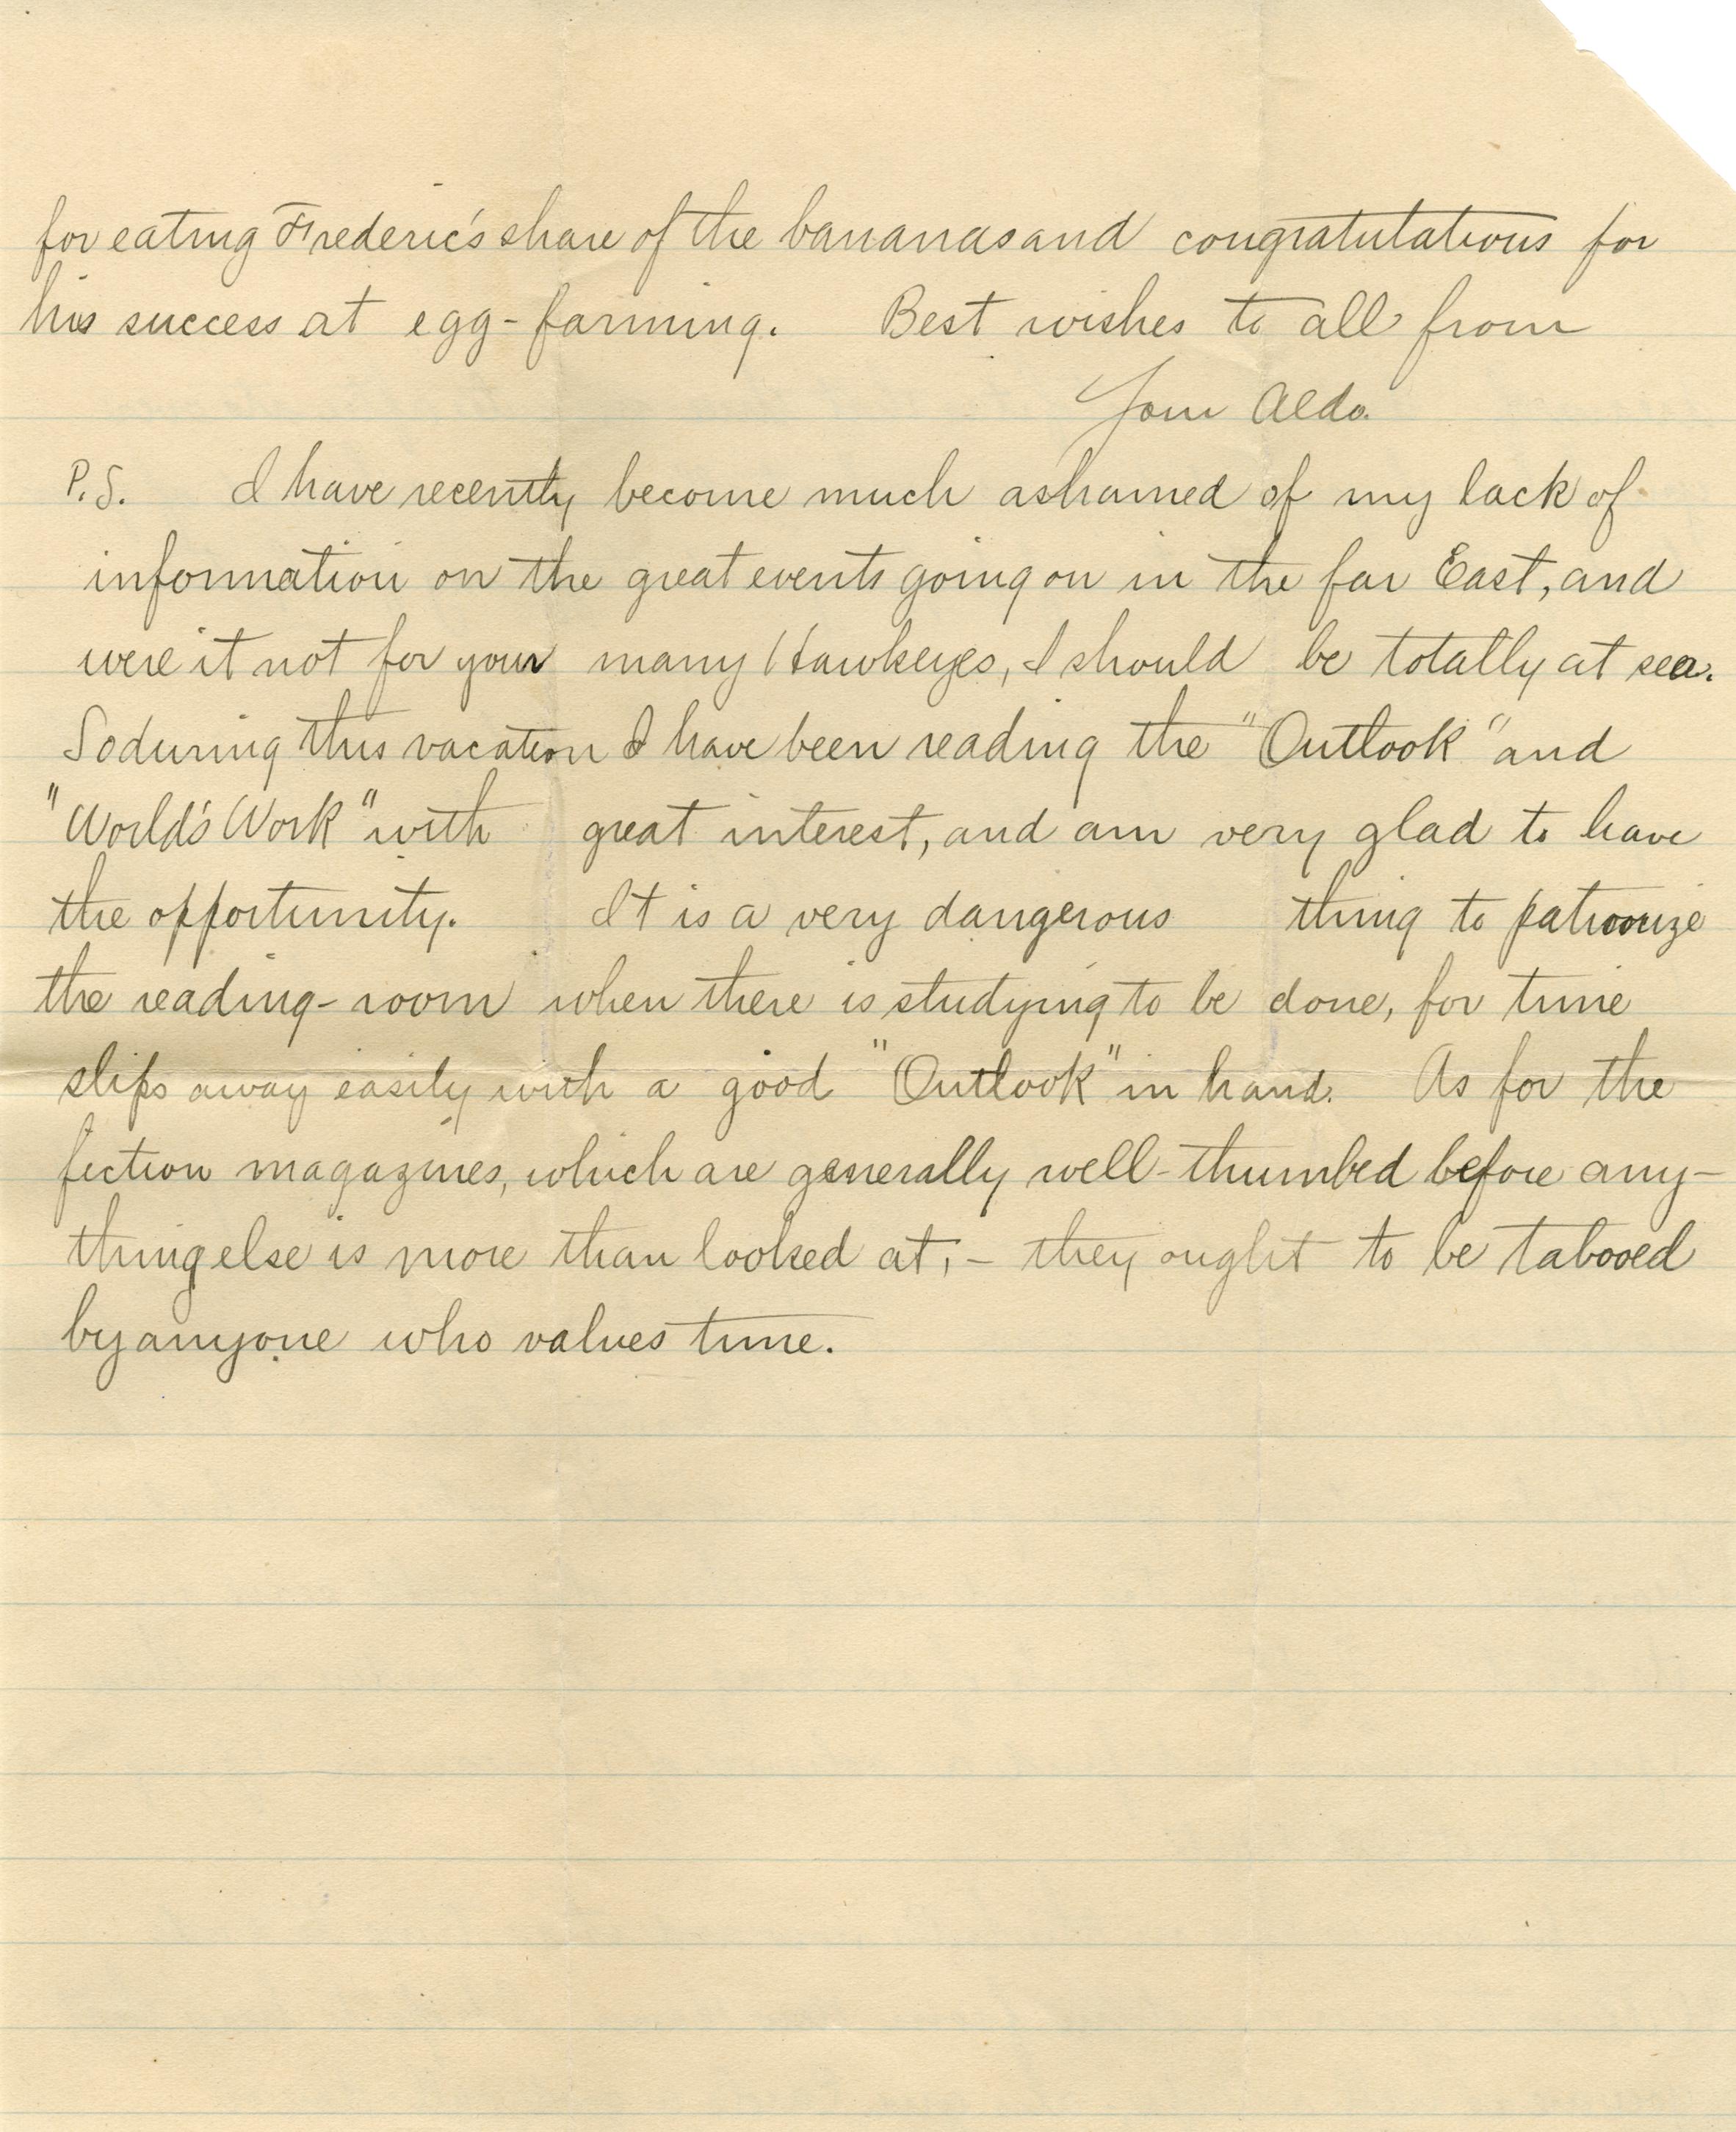 for eating Frederic's share of the bananas and congratulations for
his success at egg-farming. Best wishes to all from
Your Aldo.
P.S. I have recently become much ashamed of my lack of
information on the great events going on in the far East, and
were it not for your many Hawkeyes, I should be totally at sea.
So during this vacation I have been reading the "Outlook" and
"World's Work" with great interest, and am very glad to have
the opportunity. It is a very dangerous thing to patronize
the reading-room when there is studying to be done, for time
slips away easily with a good "Outlook" in hand. As for the
fiction magazines, which are generally well-thumbed before any-
thing else is more than looked at, - they ought to be tabooed
by anyone who values time.